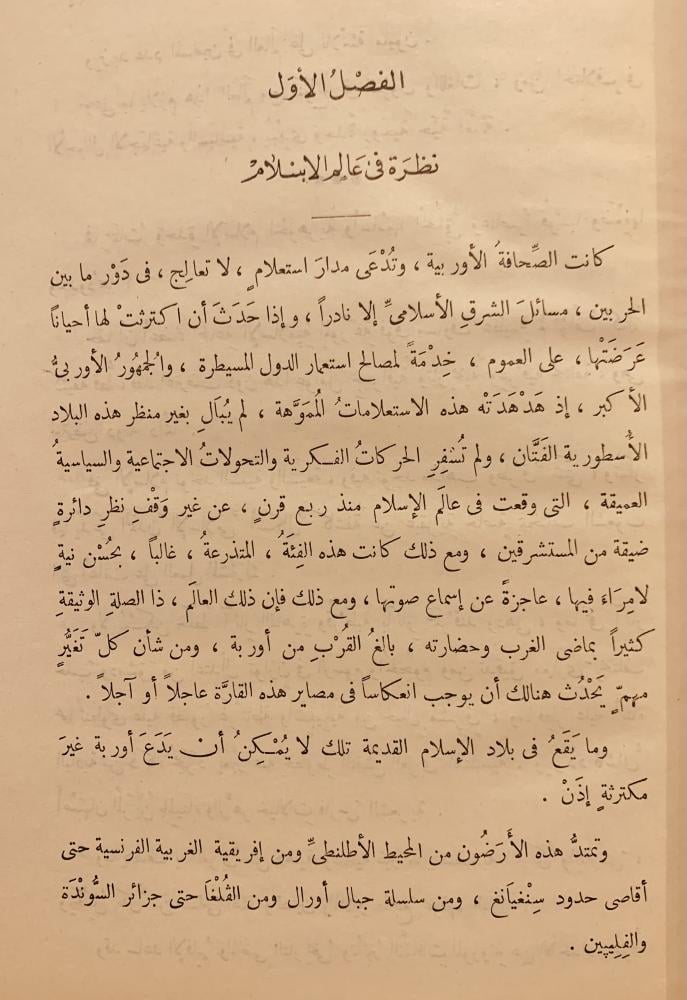 الفصْلُ الأوَل
نظرَة فى عَالم الإسلام
كانت الصِّحافةُ الأوربية ، وتُدْعَى مدارَ استعلامٍ ، لا تعالِج ، فى دَوْر ما بين
الحربين ، مسائلَ الشرقِ الأسلامىِّ إلا نادراً ، وإذا حَدَثَ أن اكترثتْ لها أحياناً
عَرَضَتْها ، على العموم ، خِدْمَةً لمصالح استعمار الدول المسيطرة ، والجمهُورُ الأوربىُّ
الأكبر ، إذ هَدْهَدَتْه هذه الاستعلاماتُ المُمَوَّهة ، لم يُبَالِ بغير منظر هذه البلاد
الأُسطورية الفَتَّان ، ولم تُسْفِرِ الحركاتُ الفكرية والتحولاتُ الاجتماعية والسياسيةُ
العميقة ، التى وقعت فى عالَم الإسلام منذ ربع قرنٍ ، عن غير وَقْفِ نظرِ دائرةٍ
ضيقة من المستشرقين ، ومع ذلك كانت هذه الفِئَةُ ، المتذرعةُ ، غالباً ، بحُسْن نيةٍ
لامِرَاءَ فيها ، عاجزةً عن إسماع صوتها ، ومع ذلك فإن ذلك العالَم ، ذا الصلةِ الوثيقةِ
كثيراً بماضى الغرب وحضارته ، بالغُ القُرْبِ من أوربة ، ومن شأن كلّ تَغَيُّرٍ
مهمٍّ يَحْدُث هنالك أن يوجب انعكاساً فى مصاير هذه القارَّة عاجلاً أو آجلاً .
وما يَقَعُ فى بلاد الإسلام القديمة تلك لا يُمْكِنُ أنْ يَدَعَ أوربة غيرَ
مكترثةٍ إذَنْ .
وتمتدُّ هذه الأَرَضُون من المحيط الأطلنطىِّ ومن إفريقية الغربية الفرنسية حتى
أقاصى حدود سِنْغيَانغ ، ومن سلسلة جبال أورال ومن الڤُلْغَا حتى جزائر السُّونْدَة
والفِلِيپين .